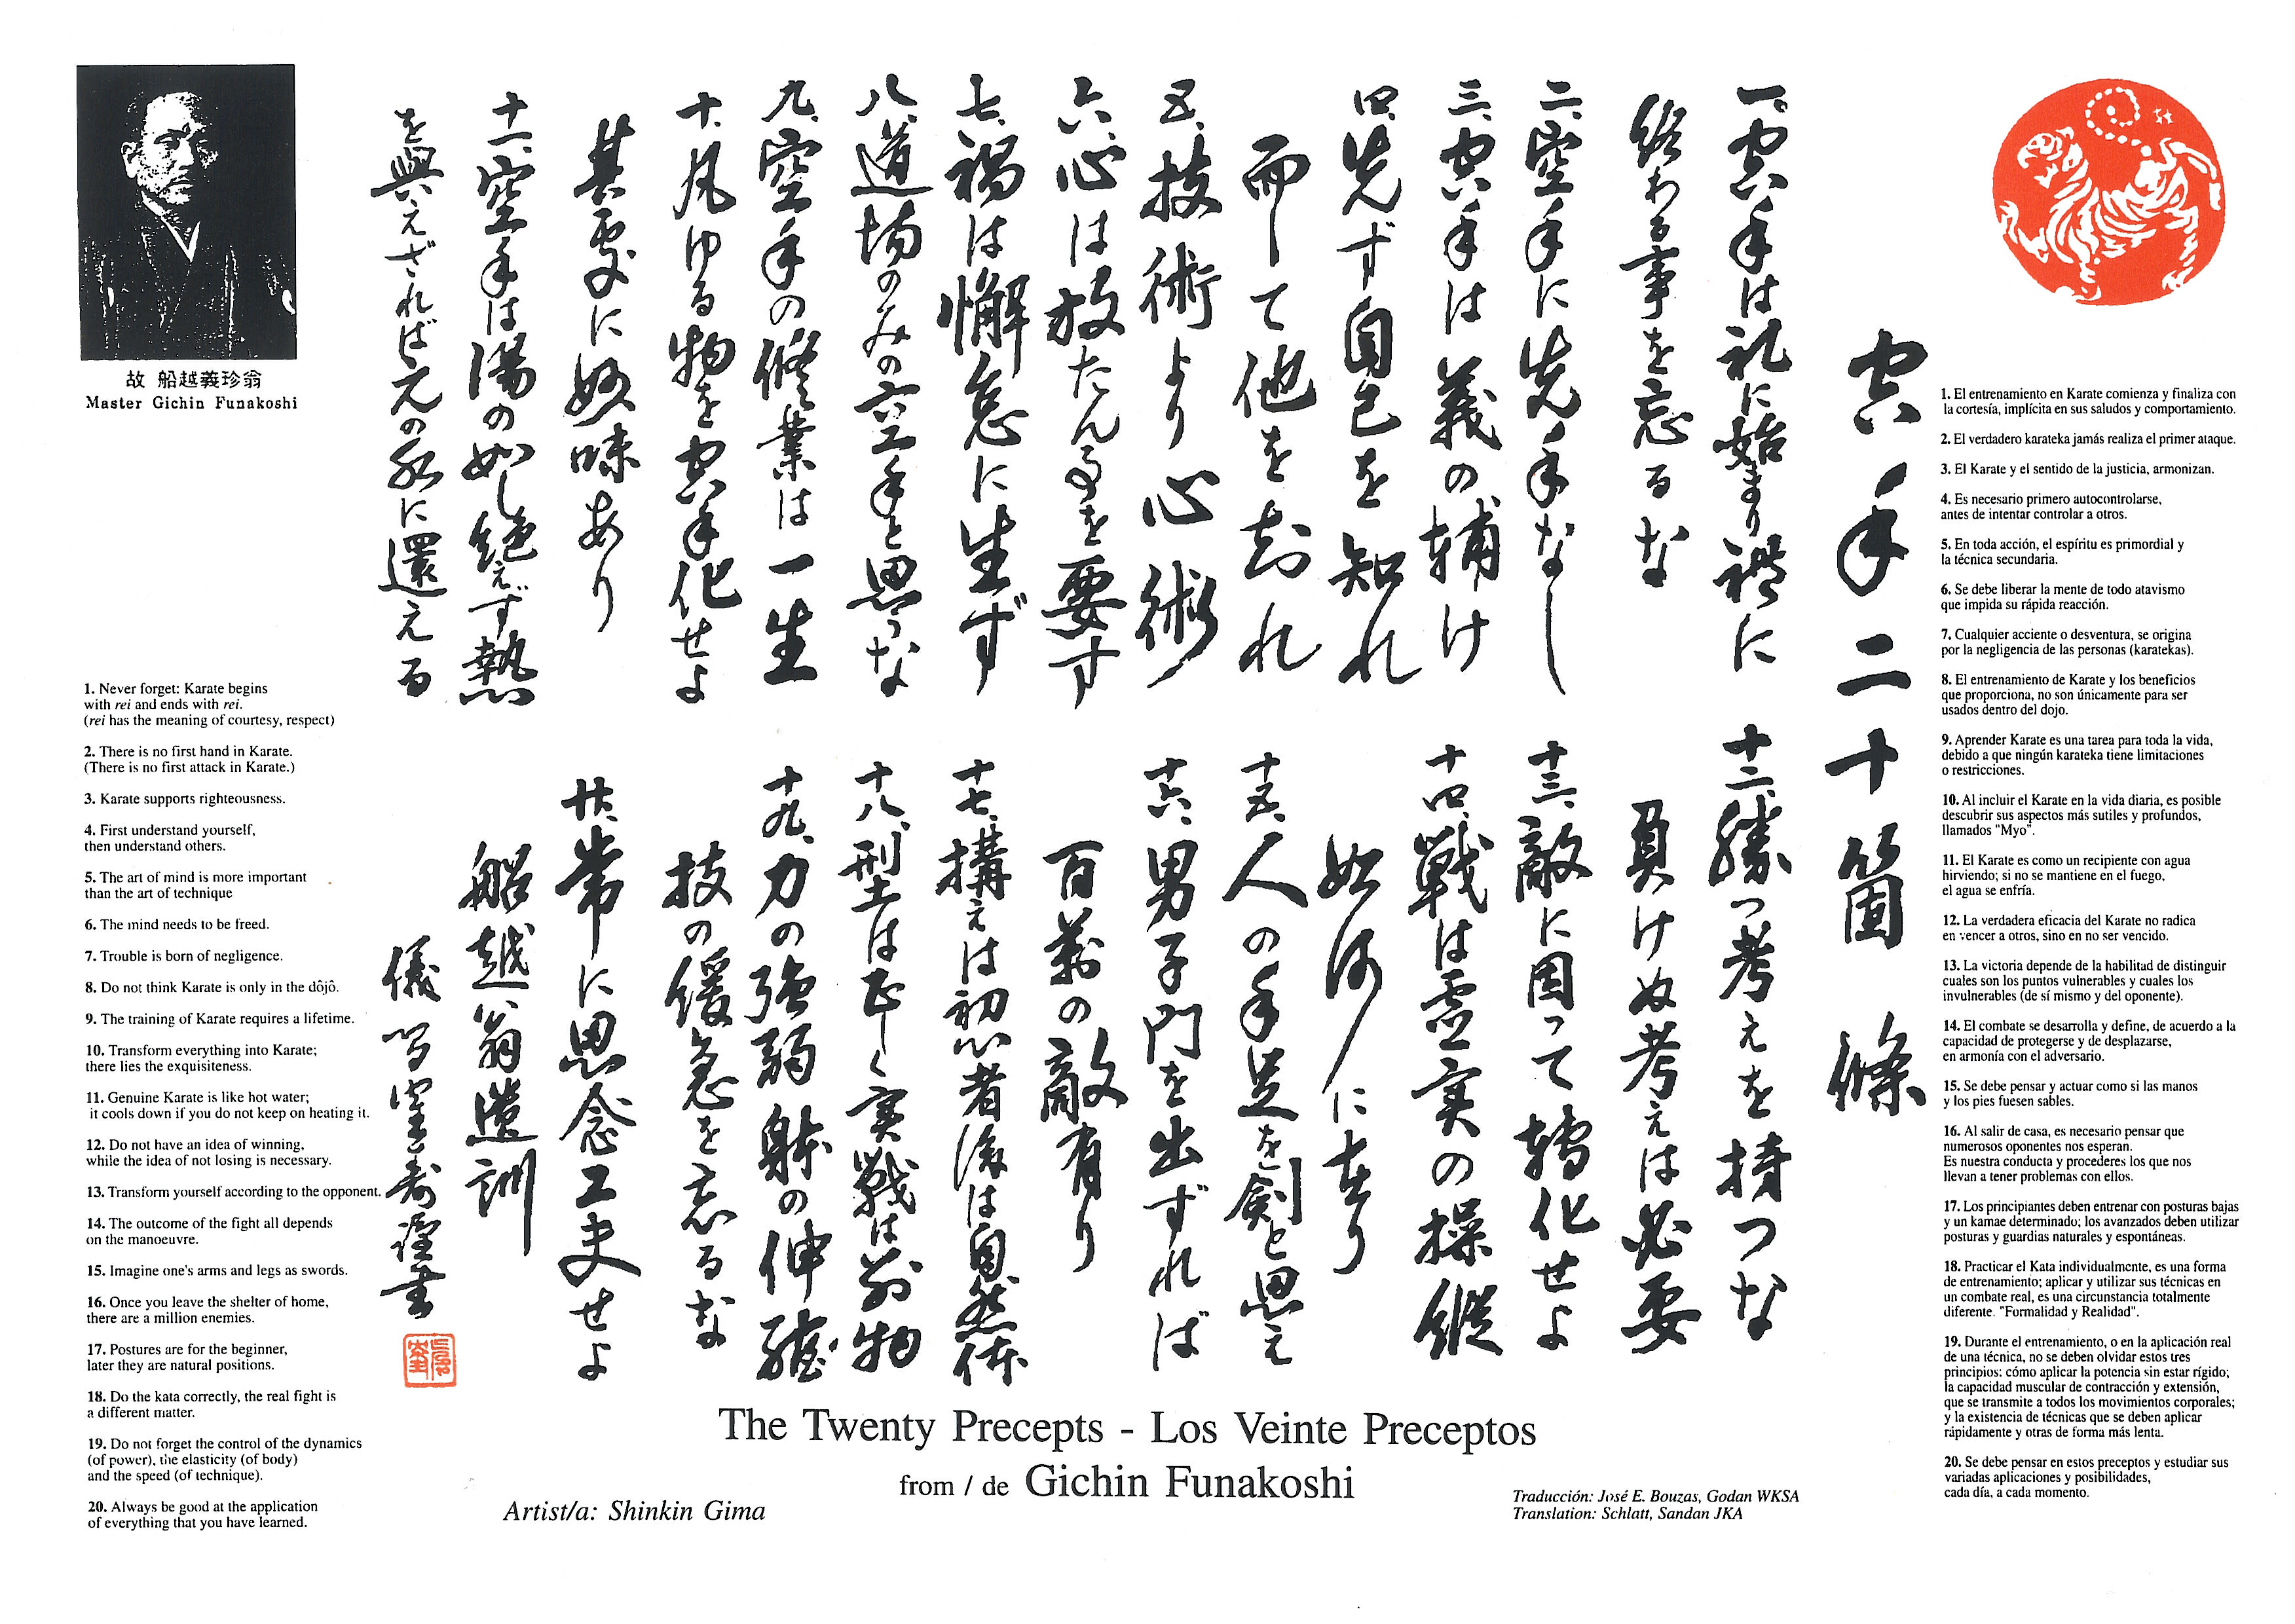 故 船越義珍翁
Master Gichin Funakoshi
空手二十箇條
一、空手は礼に始まり禮に
終わる事を忘るな
二、空手に先手なし
三、空手は義の補け
四、先ず自己を知れ
而して他を知れ
五、技術より心術
六、心は放たん事を要す
七、禍は懈怠に生ず
八、道場のみの空手と思うな
九、空手の修業は一生
十、凡ゆる物を空手化せよ
其處に妙味あり
十一、空手は湯の如し絶えず熱
を與えざれば元の水に還える
十二、勝つ考えを持つな
負けぬ考えは必要
十三、敵に因って轉化せよ
十四、戦は虚実の操縦
如何に在り
十五、人の手足を剣と思え
十六、男子門を出ずれば
百萬の敵有り
十七、構えは初心者後は自然体
十八、型は正しく実戦は別物
十九、力の強弱躰の伸縮
技の緩急を忘るな
廿、常に思念工夫せよ
船越翁遺訓
儀間 謹書
1. Never forget: Karate begins
with rei and ends with rei.
(rei has the meaning of courtesy, respect)
2. There is no first hand in Karate.
(There is no first attack in Karate.)
3. Karate supports righteousness.
4. First understand yourself,
then understand others.
5. The art of mind is more important
than the art of technique
6. The mind needs to be freed.
7. Trouble is born of negligence.
8. Do not think Karate is only in the dôjô.
9. The training of Karate requires a lifetime.
10. Transform everything into Karate;
there lies the exquisiteness.
11. Genuine Karate is like hot water;
it cools down if you do not keep on heating it.
12. Do not have an idea of winning,
while the idea of not losing is necessary.
13. Transform yourself according to the opponent.
14. The outcome of the fight all depends
on the manoeuvre.
15. Imagine one's arms and legs as swords.
16. Once you leave the shelter of home,
there are a million enemies.
17. Postures are for the beginner,
later they are natural positions.
18. Do the kata correctly, the real fight is
a different matter.
19. Do not forget the control of the dynamics
(of power), the elasticity (of body)
and the speed (of technique).
20. Always be good at the application
of everything that you have learned.
1. El entrenamiento en Karate comienza y finaliza con
la cortesía, implícita en sus saludos y comportamiento.
2. El verdadero karateka jamás realiza el primer ataque.
3. El Karate y el sentido de la justicia, armonizan.
4. Es necesario primero autocontrolarse,
antes de intentar controlar a otros.
5. En toda acción, el espíritu es primordial y
la técnica secundaria.
6. Se debe liberar la mente de todo atavismo
que impida su rápida reacción.
7. Cualquier acciente o desventura, se origina
por la negligencia de las personas (karatekas).
8. El entrenamiento de Karate y los beneficios
que proporciona, no son únicamente para ser
usados dentro del dojo.
9. Aprender Karate es una tarea para toda la vida,
debido a que ningún karateka tiene limitaciones
o restricciones.
10. Al incluir el Karate en la vida diaria, es posible
descubrir sus aspectos más sutiles y profundos,
llamados "Myo".
11. El Karate es como un recipiente con agua
hirviendo; si no se mantiene en el fuego,
el agua se enfría.
12. La verdadera eficacia del Karate no radica
en vencer a otros, sino en no ser vencido.
13. La victoria depende de la habilitad de distinguir
cuales son los puntos vulnerables y cuales los
invulnerables (de sí mismo y del oponente).
14. El combate se desarrolla y define, de acuerdo a la
capacidad de protegerse y de desplazarse,
en armonía con el adversario.
15. Se debe pensar y actuar como si las manos
y los pies fuesen sables.
16. Al salir de casa, es necesario pensar que
numerosos oponentes nos esperan.
Es nuestra conducta y procederes los que nos
llevan a tener problemas con ellos.
17. Los principiantes deben entrenar con posturas bajas
y un kamae determinado; los avanzados deben utilizar
posturas y guardias naturales y espontáneas.
18. Practicar el Kata individualmente, es una forma
de entrenamiento; aplicar y utilizar sus técnicas en
un combate real, es una circunstancia totalmente
diferente. "Formalidad y Realidad".
19. Durante el entrenamiento, o en la aplicación real
de una técnica, no se deben olvidar estos tres
principios: cómo aplicar la potencia sin estar rígido;
la capacidad muscular de contracción y extensión,
que se transmite a todos los movimientos corporales;
y la existencia de técnicas que se deben aplicar
rápidamente y otras de forma más lenta.
20. Se debe pensar en estos preceptos y estudiar sus
variadas aplicaciones y posibilidades,
cada día, a cada momento.
The Twenty Precepts - Los Veinte Preceptos
from / de Gichin Funakoshi
Artist/a: Shinkin Gima
Traducción: José E. Bouzas, Godan WKSA
Translation: Schlatt, Sandan JKA